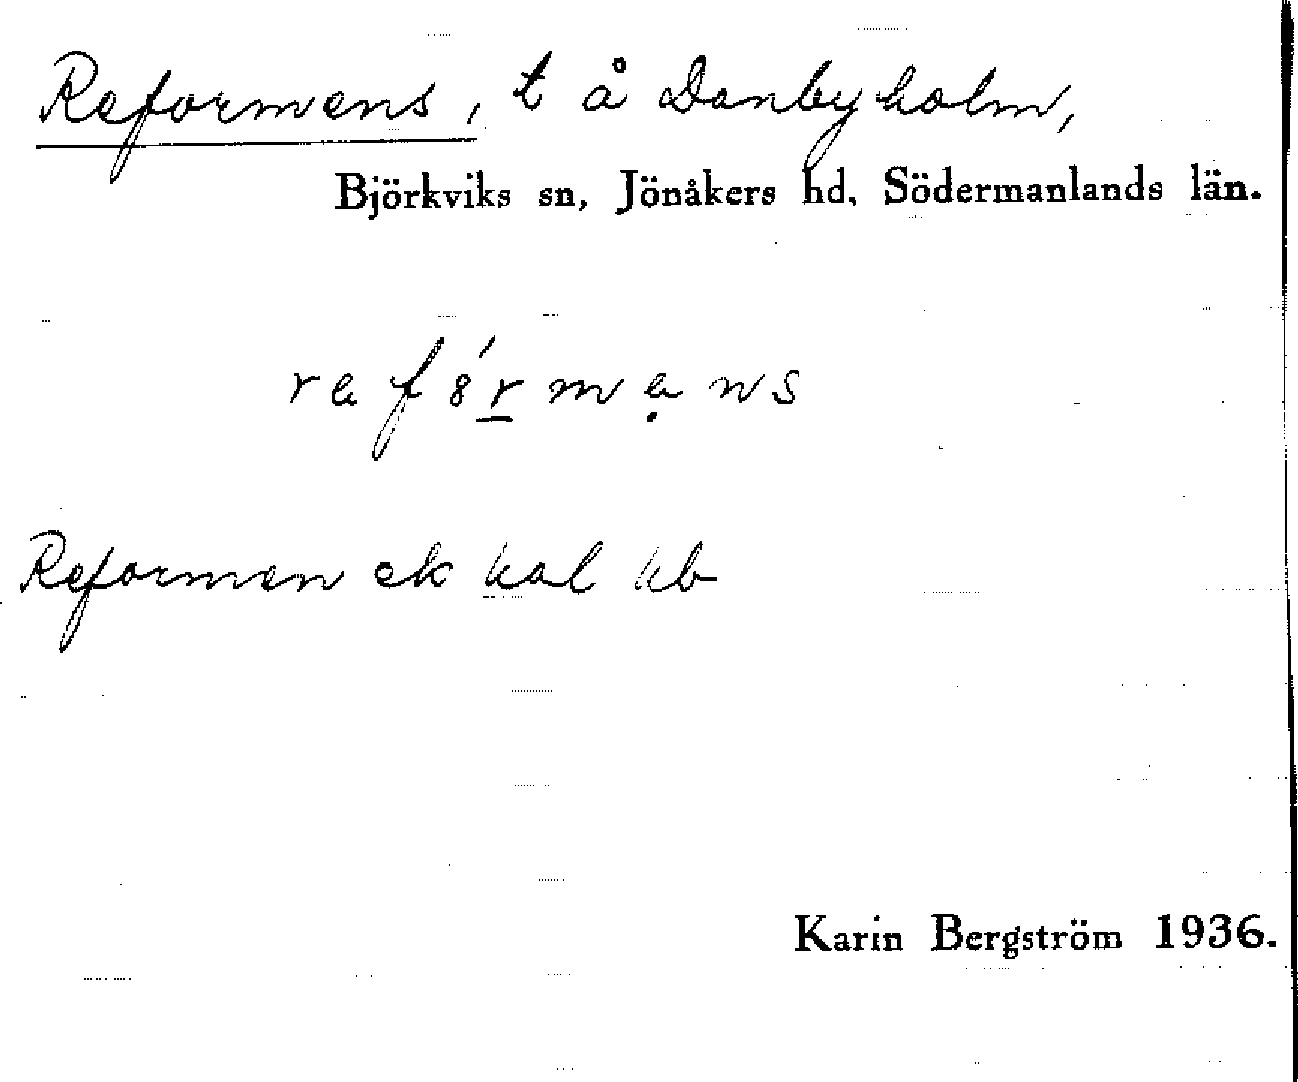 Reformens, t å Danbyholm,
Björkviks sn, Jönåkers hd, Södermanlands län.
ref8́r̲mẹns
Reformen ek kal kb
Karin Bergström 1936.